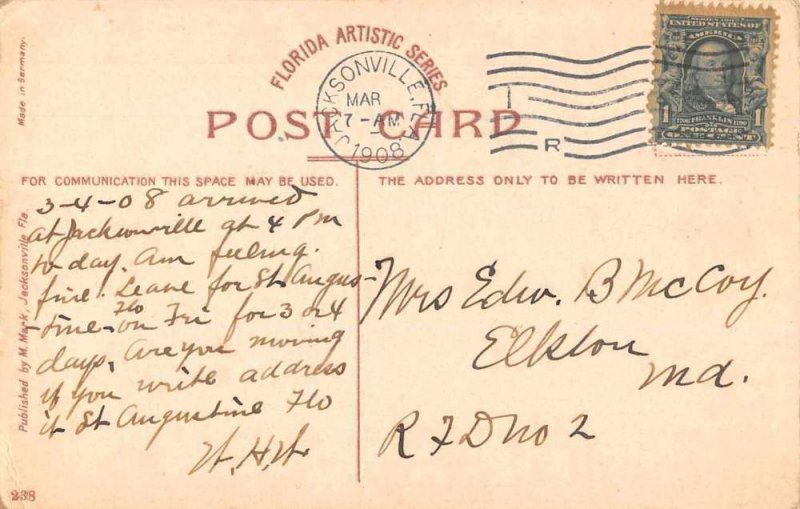 FLORIDA ARTISTIC SERIES.
JACKSONVILLE, FLA.
MAR
7-AM
1908
R
SERIES 1902
UNITED STATES OF
AMERICA
1 FRANKLIN 1
POSTAGE
ONE CENT
POST CARD
FOR COMMUNICATION THIS SPACE MAY BE USED.
THE ADDRESS ONLY TO BE WRITTEN HERE.
Made in Germany.
Published by M. Mark, Jacksonville Fla.
3-4-08 arrived
at Jacksonville at 4 PM
to day. Am feeling
fine. Leave for St Augus-
-tine Flo on Fri for 3 or 4
days. Are you moving
if you write address
it St Augustine Flo
W.H.W
Mrs Edw. B McCoy.
Elkton
Md.
R F D No 2
238